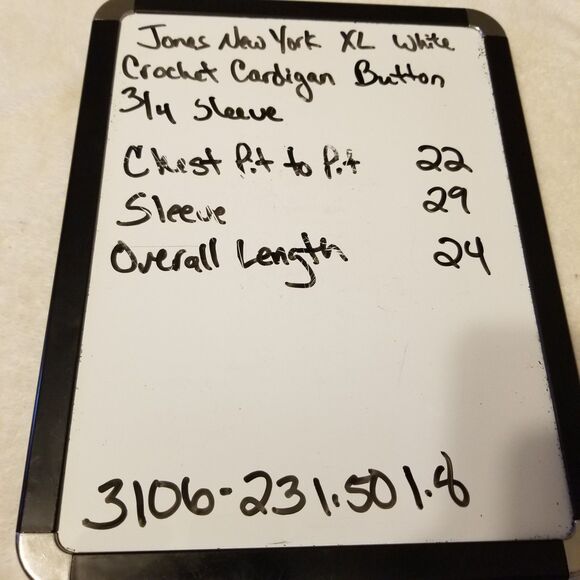 Jones New York XL White
Crochet Cardigan Button
3/4 Sleeve
Chest Pit to Pit 22
Sleeve 29
Overall Length 24
3106-231.50 1.8